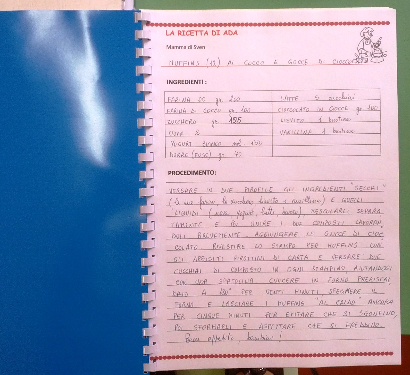 LA RICETTA DI ADA
Mamma di Sven
MUFFINS (12) AL COCCO E GOCCE DI CIOCCOLATO
INGREDIENTI:
FARINA 00 gr. 200
LATTE 5 cucchiai
FARINA DI COCCO gr. 100
CIOCCOLATO IN GOCCE gr. 100
ZUCCHERO gr. 125
LIEVITO 1 bustina
UOVA 2
VANILLINA 1 bustina
YOGURT
BURRO (FUSO) gr. 75
PROCEDIMENTO:
IN DUE GLI INGREDIENTI "SECCHI"
(le due farine, lo zucchero, lievito e vanillina) E QUELLI
LIQUIDI (uova, yogurt, latte, burro), MESCOLARE SEPARA
TAMENTE E POI UNIRE I DUE COMPOSTI LAVORAN
DOLI BREVEMENTE. AGGIUNGERE LE GOCCE DI CIOC
COLATO. RIVESTIRE LO STAMPO PER MUFFINS CON
GLI APPOSITI PIROTTINI DI CARTA E VERSARE DUE
CUCCHIAI DI COMPOSTO IN OGNI STAMPINO,
CON UNA SPATOLINA. CUOCERE IN FORNO PRERISCAL
DATO A PER VENTI MINUTI. SPEGNERE IL
FORNO E LASCIARE I MUFFINS "AL CALDO" ANCORA
PER CINQUE MINUTI PER EVITARE CHE SI SGONFINO,
POI SFORNARLI E ASPETTARE CHE SI FREDDINO.
Buon appetito, bambini!